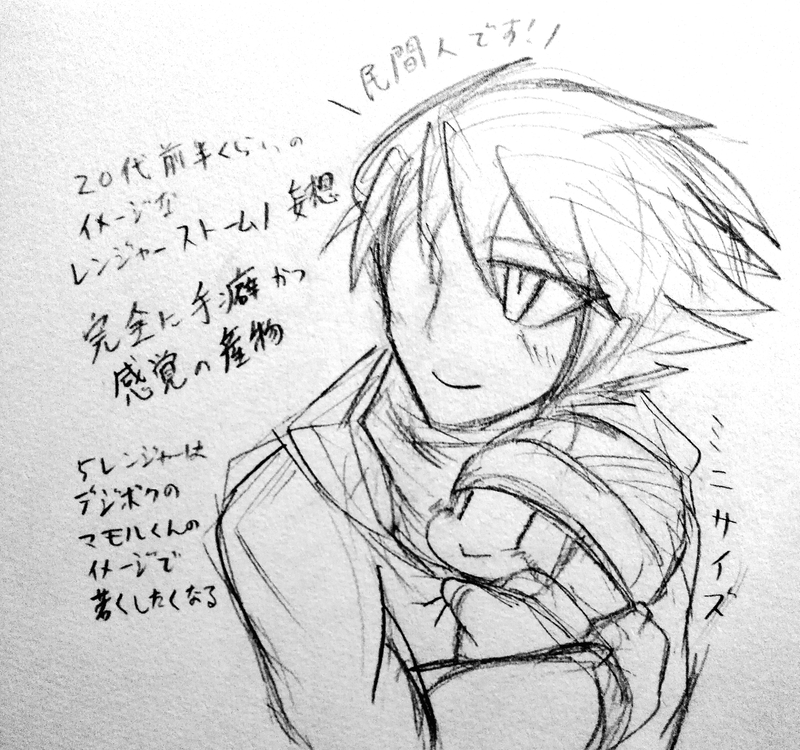 \民間人です!/
20代前半くらいの
イメージな
レンジャーストーム1妄想
完全に手癖かつ
感覚の産物
5レンジャーは
デジボクの
マモルくんの
イメージで
若くしたくなる
ミニサイズ